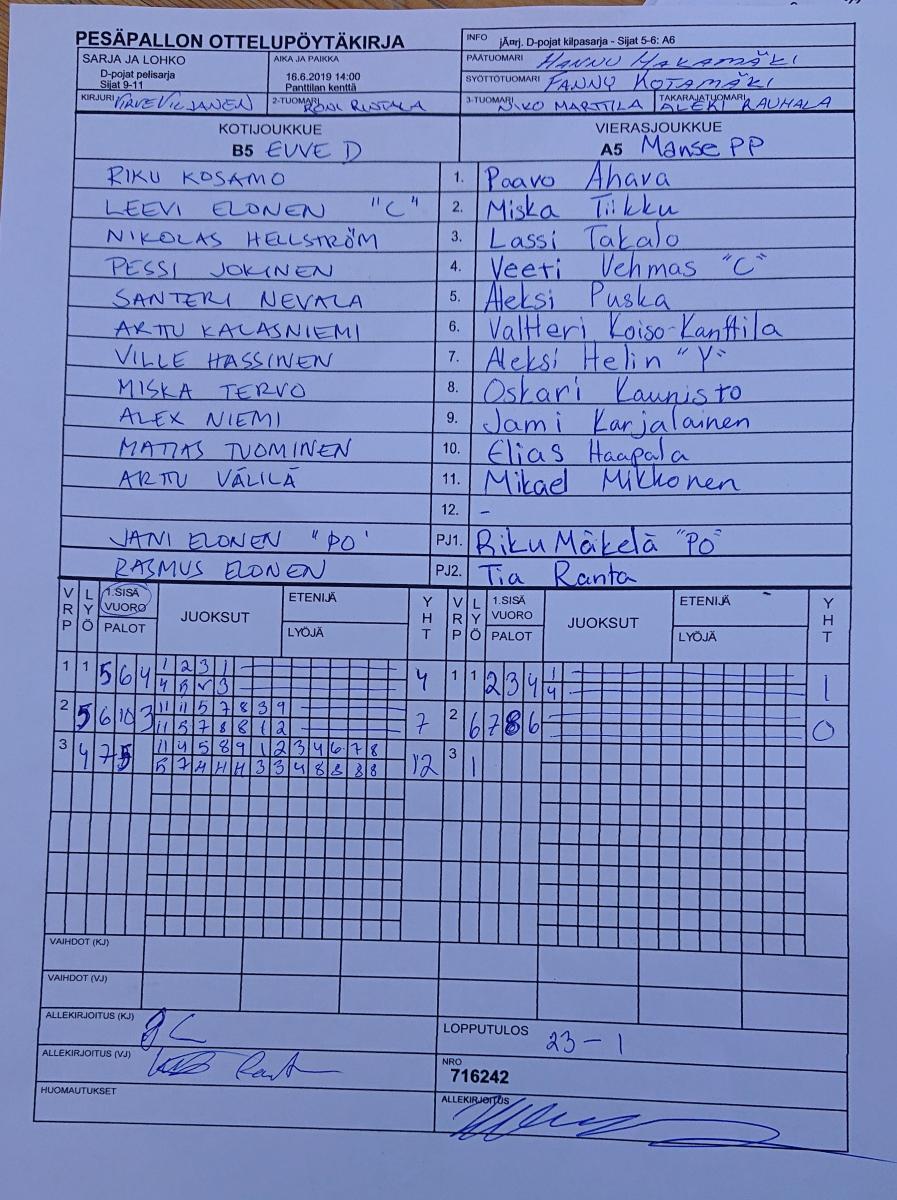 PESÄPALLON OTTELUPÖYTÄKIRJA
INFO jÄrj. D-pojat kilpasarja - Sijat 5-6: A6
SARJA JA LOHKO
D-pojat pelisarja
Sijat 9-11
AIKA JA PAIKKA
16.6.2019 14:00
Panttilan kenttä
PÄÄTUOMARI HANNU HAKAMÄKI
SYÖTTÖTUOMARI FANNY KOTAMÄKI
KIRJURI VIRVE VILJANEN
2-TUOMARI RONI RINTALA
3-TUOMARI NIKO MARTTILA
TAKARAJATUOMARI ALEKI RAUHALA
KOTIJOUKKUE
B5 EUVE D
VIERASJOUKKUE
A5 Manse PP
RIKU KOSAMO 1. Paavo Ahava
LEEVI ELONEN "C" 2. Miska Tiikku
NIKOLAS HELLSTRÖM 3. Lassi Takalo
PESSI JOKINEN 4. Veeti Vehmas "C"
SANTERI NEVALA 5. Aleksi Puska
ARTTU KALASNIEMI 6. Valtteri Koiso-Kanttila
VILLE HASSINEN 7. Aleksi Helin "Y"
MISKA TERVO 8. Oskari Kaunisto
ALEX NIEMI 9. Jami Karjalainen
MATIAS TUOMINEN 10. Elias Haapala
ARTTU VÄLILÄ 11. Mikael Mikkonen
12. -
JANI ELONEN "PO" PJ1. Riku Mäkelä "PO"
RASMUS ELONEN PJ2. Tia Ranta
VRP LYÖ 1.SISÄ VUORO PALOT JUOKSUT ETENIJÄ LYÖJÄ YHT
VRP LYÖ 1.SISÄ VUORO PALOT JUOKSUT ETENIJÄ LYÖJÄ YHT
1 1 5 6 4 1 2 3 1 4 1 1 2 3 4 1 1
4 5 v 3 4
2 5 6 10 3 11 11 5 7 8 3 9 7 2 6 7 8 6 0
11 5 7 8 8 1 2
3 4 7 5 11 4 5 8 9 1 2 3 4 6 7 8 12 3 1
5 7 4 4 4 3 3 4 8 8 8 8
VAIHDOT (KJ)
VAIHDOT (VJ)
ALLEKIRJOITUS (KJ)
LOPPUTULOS 23-1
ALLEKIRJOITUS (VJ)
NRO
716242
HUOMAUTUKSET
ALLEKIRJOITUS